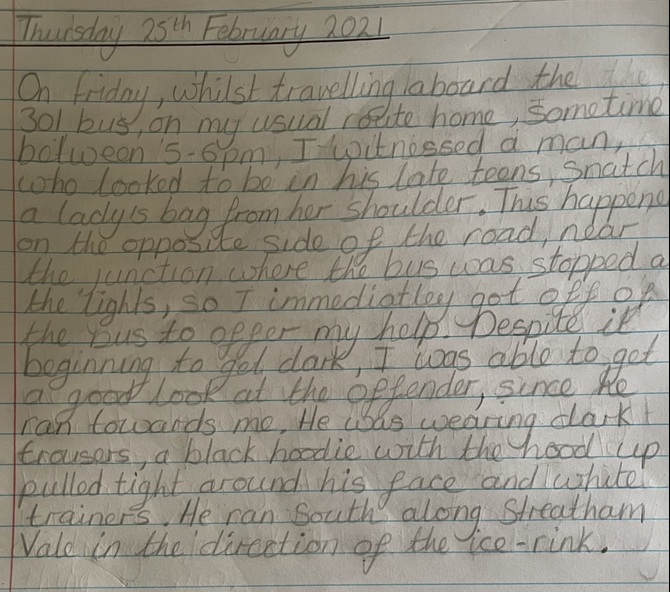 Thursday 25th February 2021
On friday, whilst travelling aboard the the
301 bus, on my usual route home, sometime
between 5-6pm, I witnessed a man,
who looked to be in his late teens, snatch
a lady's bag from her shoulder. This happene
on the opposite side of the road, near
the junction where the bus was stopped a
the lights, so I immediatley got off of
the bus to offer my help. Despite it
beginning to get dark, I was able to get
a good look at the offender, since he
ran towards me. He was wearing dark
trousers, a black hoodie with the hood up
pulled tight around his face and white
trainers. He ran South along Streatham
Vale in the direction of the ice-rink.